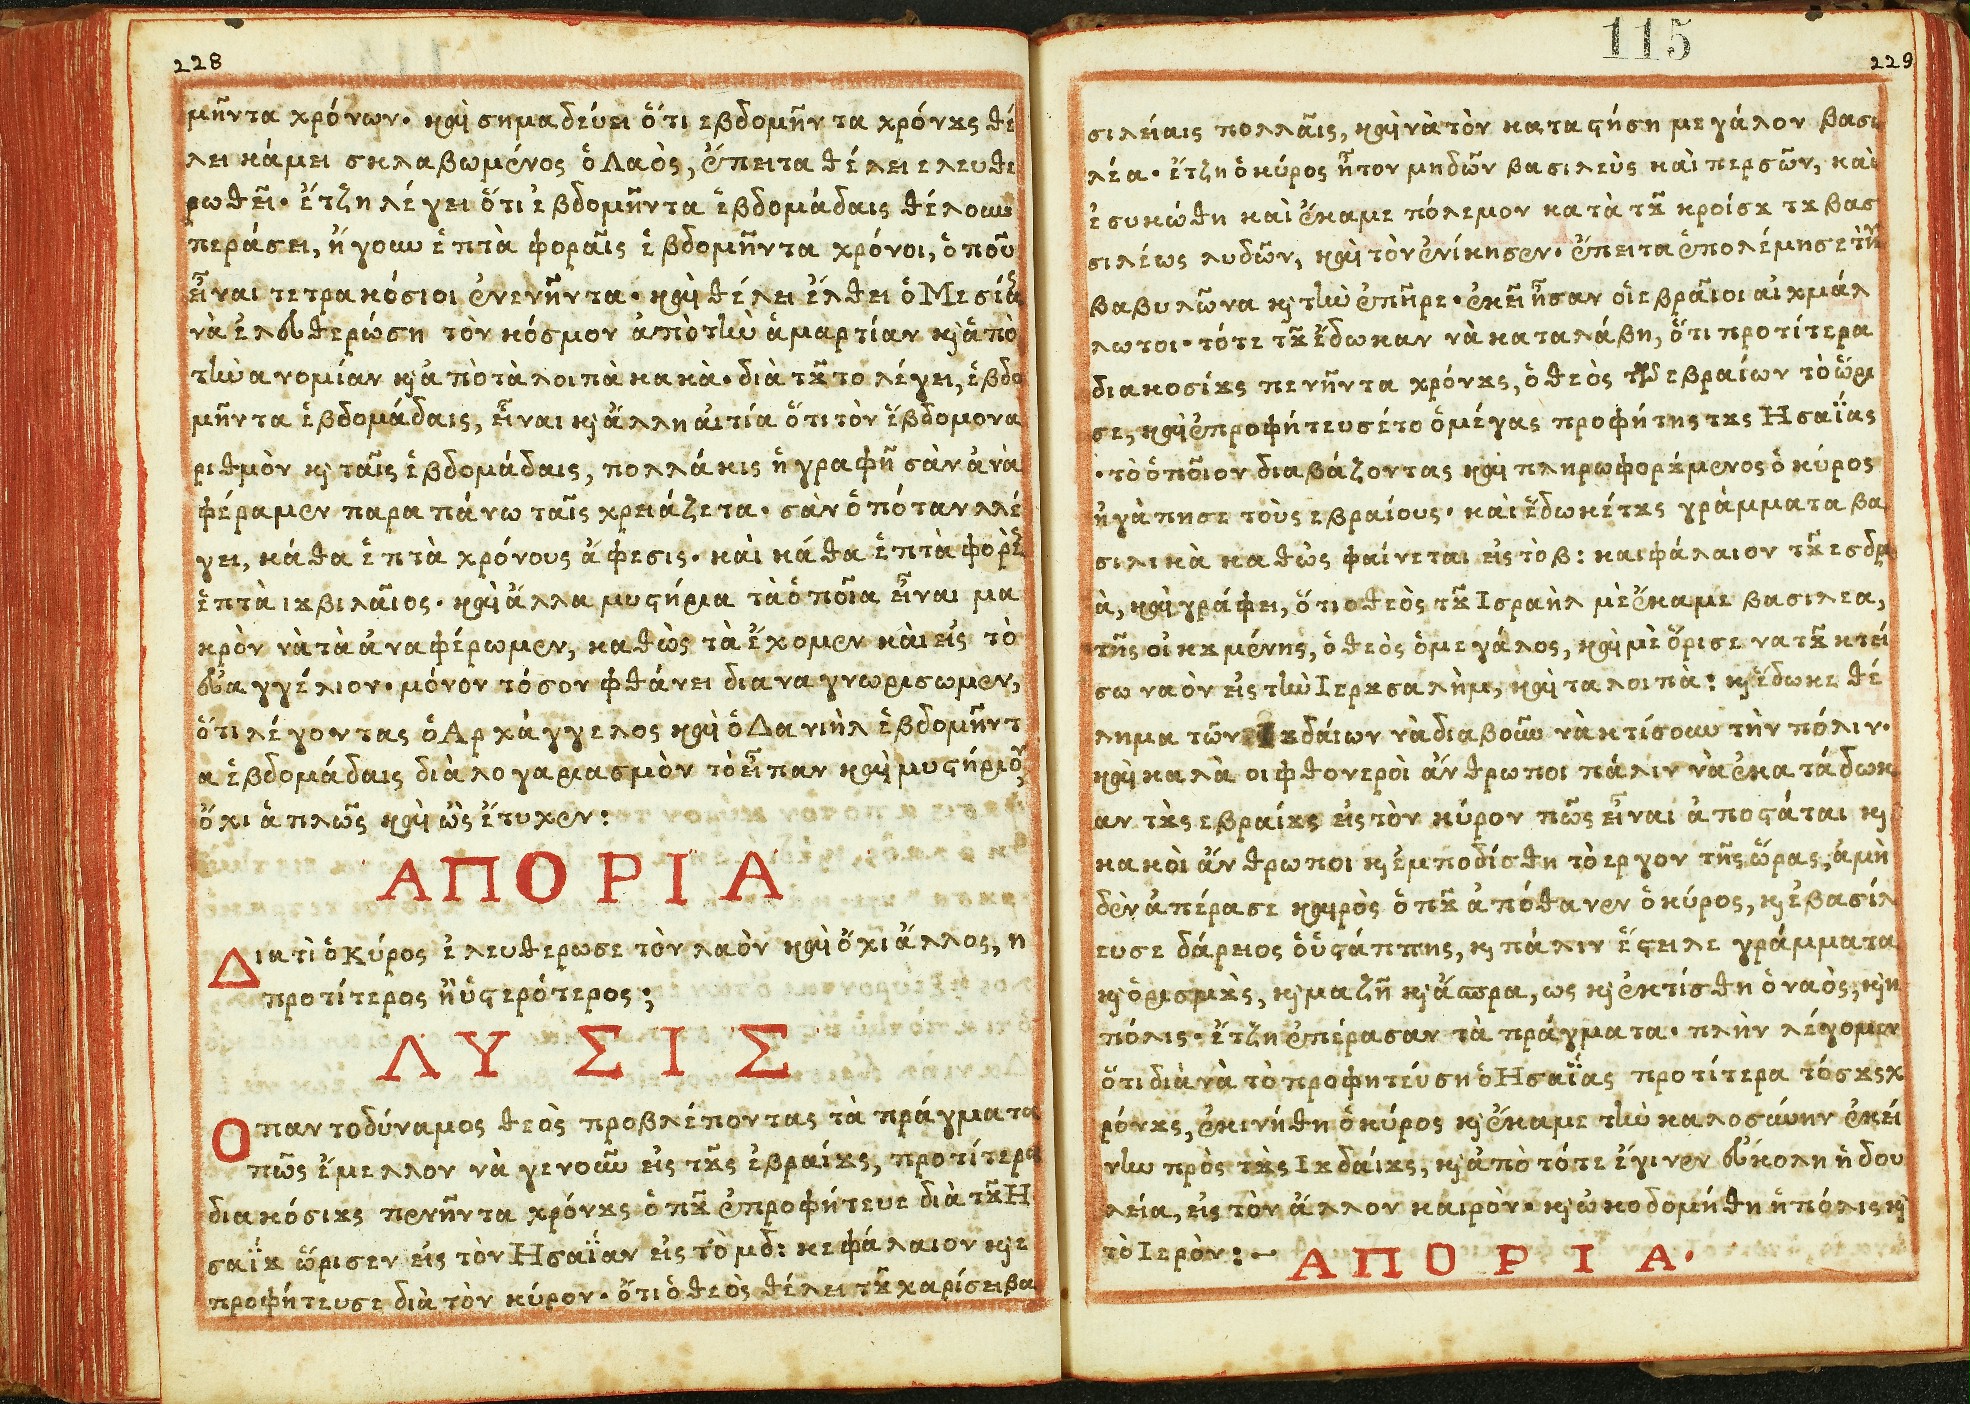 228
μῆντα χρόνων· καὶ σημαδεύει ὅτι εβδομῆντα χρόνȣς θέ
λει κάμει σκλαβωμένος ὁ Λαὸς, ἔπειτα θέλει ελευθε
ρωθεῖ· ἔτζη λέγει ὅτι ἑβδομῆντα ἑβδομάδαις θέλουν
περάσει, ἤγουν ἑπτὰ φοραῖς ἑβδομῆντα χρόνοι, ὁποῦ
εἶναι τετρακόσιοι ἐνενῆντα· καὶ θέλει ἔλθει ὁ Μεσίας
νὰ ἐλευθερώση τὸν κόσμον ἀπὸ τὴν ἁμαρτίαν κὶ ἀπὸ
τὴν ανομίαν κὶ ἀπὸ τὰ λοιπὰ κακὰ· διὰ τȣ͂το λέγει, ἑβδο
μῆντα ἑβδομάδαις, εἶναι κὶ ἄλλη αἰτία ὅτι τὸν ἕβδομον α
ριθμὸν κὶ ταῖς ἑβδομάδαις, πολλάκις ἡ γραφῆ σὰν ἀνὰ
φέραμεν παραπάνω ταῖς χρειάζεται· σὰν ὁπόταν λλέ
γει, κάθα ἑπτὰ χρόνους ἄφεσις· καὶ κάθα ἑπτὰ φοραῖς
ἑπτὰ ιȣβιλαῖος· καὶ ἄλλα μυστήρια τὰ ὁποῖα εἶναι μα
κρὸν νὰ τὰ ἀναφέρωμεν, καθὼς τὰ ἔχομεν καὶ εἰς τὸ
εὐαγγέλιον· μόνον τόσον φθάνει δια να γνωρισωμεν,
ὅτι λέγοντας ὁ Αρχάγγελος καὶ ὁ Δανιὴλ ἑβδομῆντ
α ἑβδομάδαις διὰ λογαριασμὸν τὸ εἶπαν καὶ μυστήριον,
ὄχι ἁπλῶς καὶ ὡς ἔτυχεν:
ΑΠΟΡΙΑ
Διατὶ ὁ Κύρος ἐλευθερωσε τὸν λαὸν καὶ ὄχι ἄλλος, η
προτίτερος ἢ ὑστερότερος;
ΛΥΣΙΣ
Ο παντοδύναμος θεὸς προβλέποντας τὰ πράγματα
πῶς ἔμελλον νὰ γενοῦν εἰς τȣ͂ς ἑβραίȣς, προτίτερα
διακόσιȣς πενῆντα χρόνȣς ὁπȣ͂ ἐπροφήτευε διὰ τȣ͂ Η
σαΐȣ ὥρισεν εἰς τὸν Ησαΐαν εἰς τὸ μδ: κεφάλαιον κὶ ε
προφήτευσε διὰ τὸν κύρον· ὅτι ὁ θεὸς θέλει τȣ͂ χαρίσει βα
115
229
σιλείαις πολλαῖς, καὶ νὰ τὸν καταστήση μεγάλον βασι
λέα· ἔτζη ὁ κύρος ἦτον μηδῶν βασιλεὺς καὶ περσῶν, καὶ
ἐσυκώθη καὶ ἔκαμε πόλεμον κατὰ τȣ͂ κροίσȣ τȣ βασ
σιλέως λυδῶν, καὶ τὸν ἐνίκησεν· ἔπειτα ἐπολέμησε τὴν
βαβυλῶνα κὶ τὴν ἐπῆρε· ἐκεῖ ἦσαν οἱ εβραῖοι αἰχμάλ
λωτοι· τότε τȣ͂ ἔδωκαν νὰ καταλάβη, ὅτι προτίτερα
διακοσίȣς πενῆντα χρόνȣς, ὁ θεὸς τῶν εβραίων τὸ ὥρι
σε, καὶ ἐπροφήτευσέ το ὁ μέγας προφήτης τȣς Ησαΐας
·τὸ ὁποῖον διαβάζοντας καὶ πληρωφορȣμενος ὁ κύρος
ἠγάπησε τοὺς εβραίους· καὶ ἔδωκέ τȣς γράμματα βα
σιλικὰ καθὼς φαίνεται εἰς τὸ β: καιφάλαιον τȣ͂ εσδρ
ὰ, καὶ γράφει, ὅτι ο θεὸς τȣ͂ Ισραὴλ μὲ ἔκαμε βασιλεα,
τῆς οἰκȣμένης, ὁ θεὸς ὁ μεγάλος, καὶ μὲ ὅρισε να τȣ͂ κτεί
σω ναὸν εἰς τὴν Ιερȣσαλὴμ, καὶ τα λοιπὰ: κὶ ἔδωκε θέ
λημα τῶν Ιȣδάιων νὰ διαβοῦν νὰ κτίσουν τὴν πόλιν·
καὶ καλὰ οι φθονεροὶ ἄνθρωποι πάλιν νὰ ἐκατάδωκ
αν τȣς εβραίȣς εἰς τὸν κύρον πῶς εἶναι ἀποστάται κὶ
κακοὶ ἄνθρωποι κὶ ἐμποδίσθη τὸ εργον τῆς ὥρας, ἀμὴ
δὲν ἀπέρασε καιρὸς ὁπȣ͂ ἀπόθανεν ὁ κύρος, κὶ ἐβασίλ
ευσε δάρειος ὁ ὑστάππης, κὶ πάλιν ἔστειλε γράμματα
κὶ ὁρισμȣς, κὶ μαζῆ κὶ ἄσπρα, ως κὶ ἐκτίσθη ὁ ναὸς, κὶ η
πόλις· ἔτζη ἐπέρασαν τὰ πράγματα· πλὴν λέγομεν
ὅτι διὰ νὰ τὸ προφητεύση ὁ Ησαΐας προτίτερα τόσȣς χ
ρόνȣς, ἐκινήθη ὁ κύρος κὶ ἔκαμε τὴν καλοσύνην ἐκεί
νην πρὸς τȣς Ιȣδάιȣς, κὶ ἀπὸ τότε ἔγινεν εὔκολη ἡ δου
λεία, εἰς τὸν ἄλλον καιρὸν· κὶ ῳκοδομήθη ἡ πόλις κὶ
τὸ Ιερὸν:
ΑΠΟΡΙΑ·